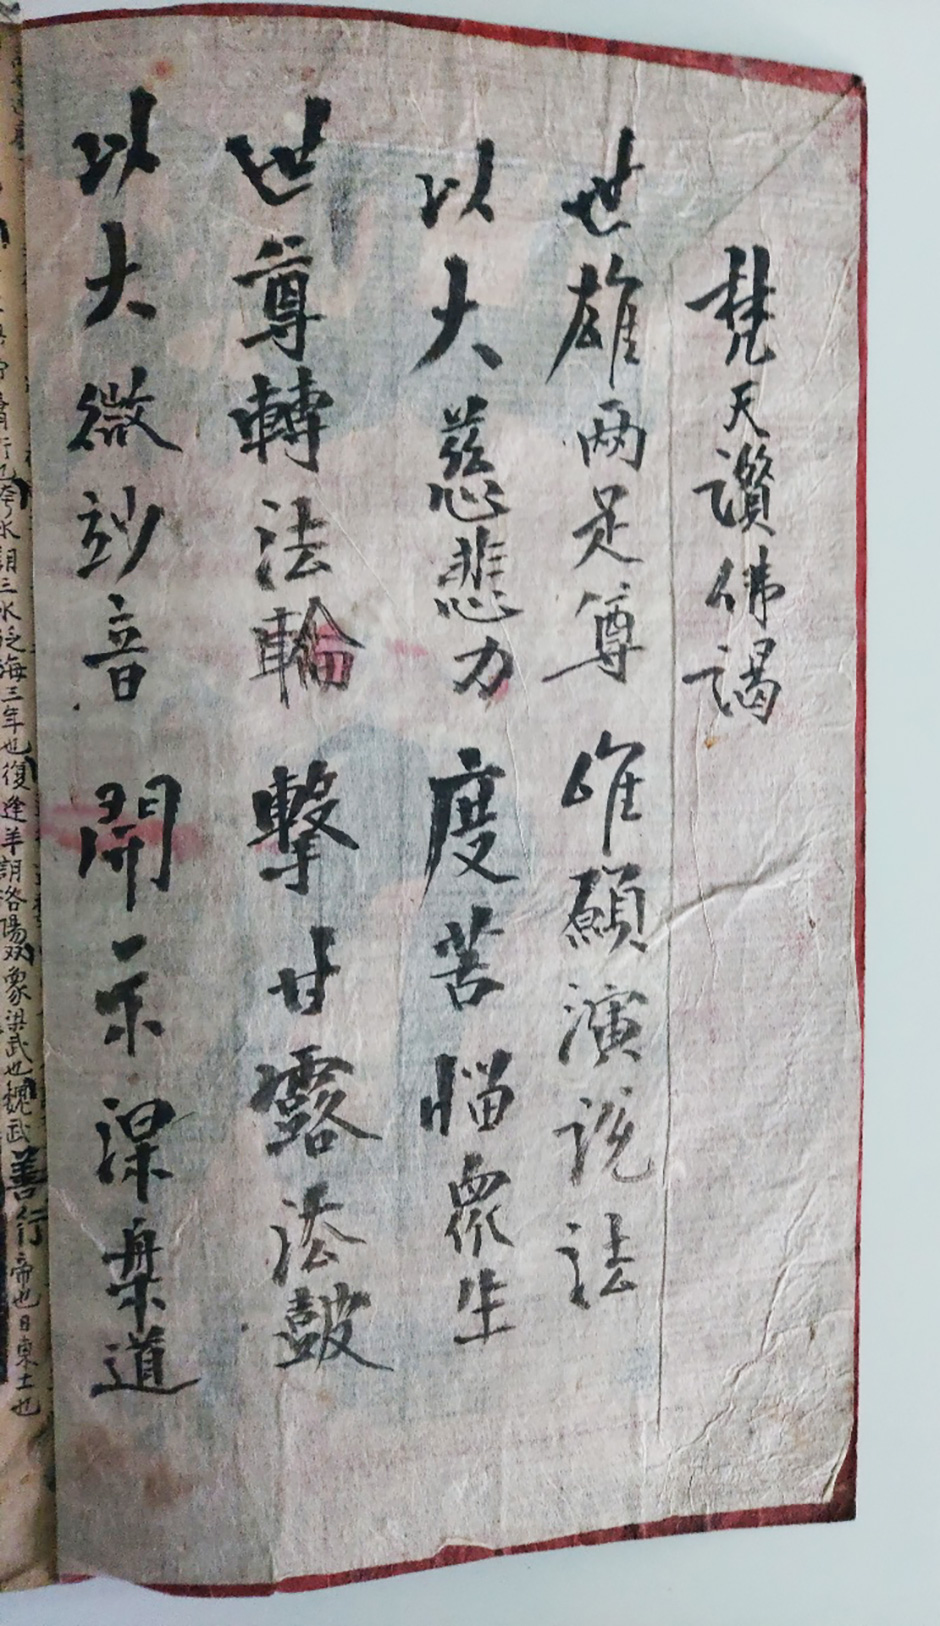 梵天讚佛謁
世雄两足尊 唯願演說法
以大慈悲力 度苦惱眾生
世尊轉法輪 擊甘露法鼓
以大微妙音 開示涅槃道
三水泛海三年也復逢羊
洛陽双象梁武也魏武善行帝也日東土也